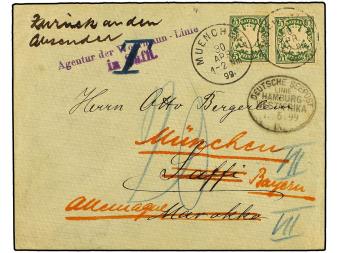 Zurück an den
Absender
Agentur der Woermann-Linie
in Saffi.
T
MUENCHEN
20
APR
1-2 NM
99.
DEUTSCHE SEEPOST
LINIE
HAMBURG-
5 99
Herrn Otto Bergerlein
20
München
Saffi
Bayern
Allemagne
Marokko
III
III